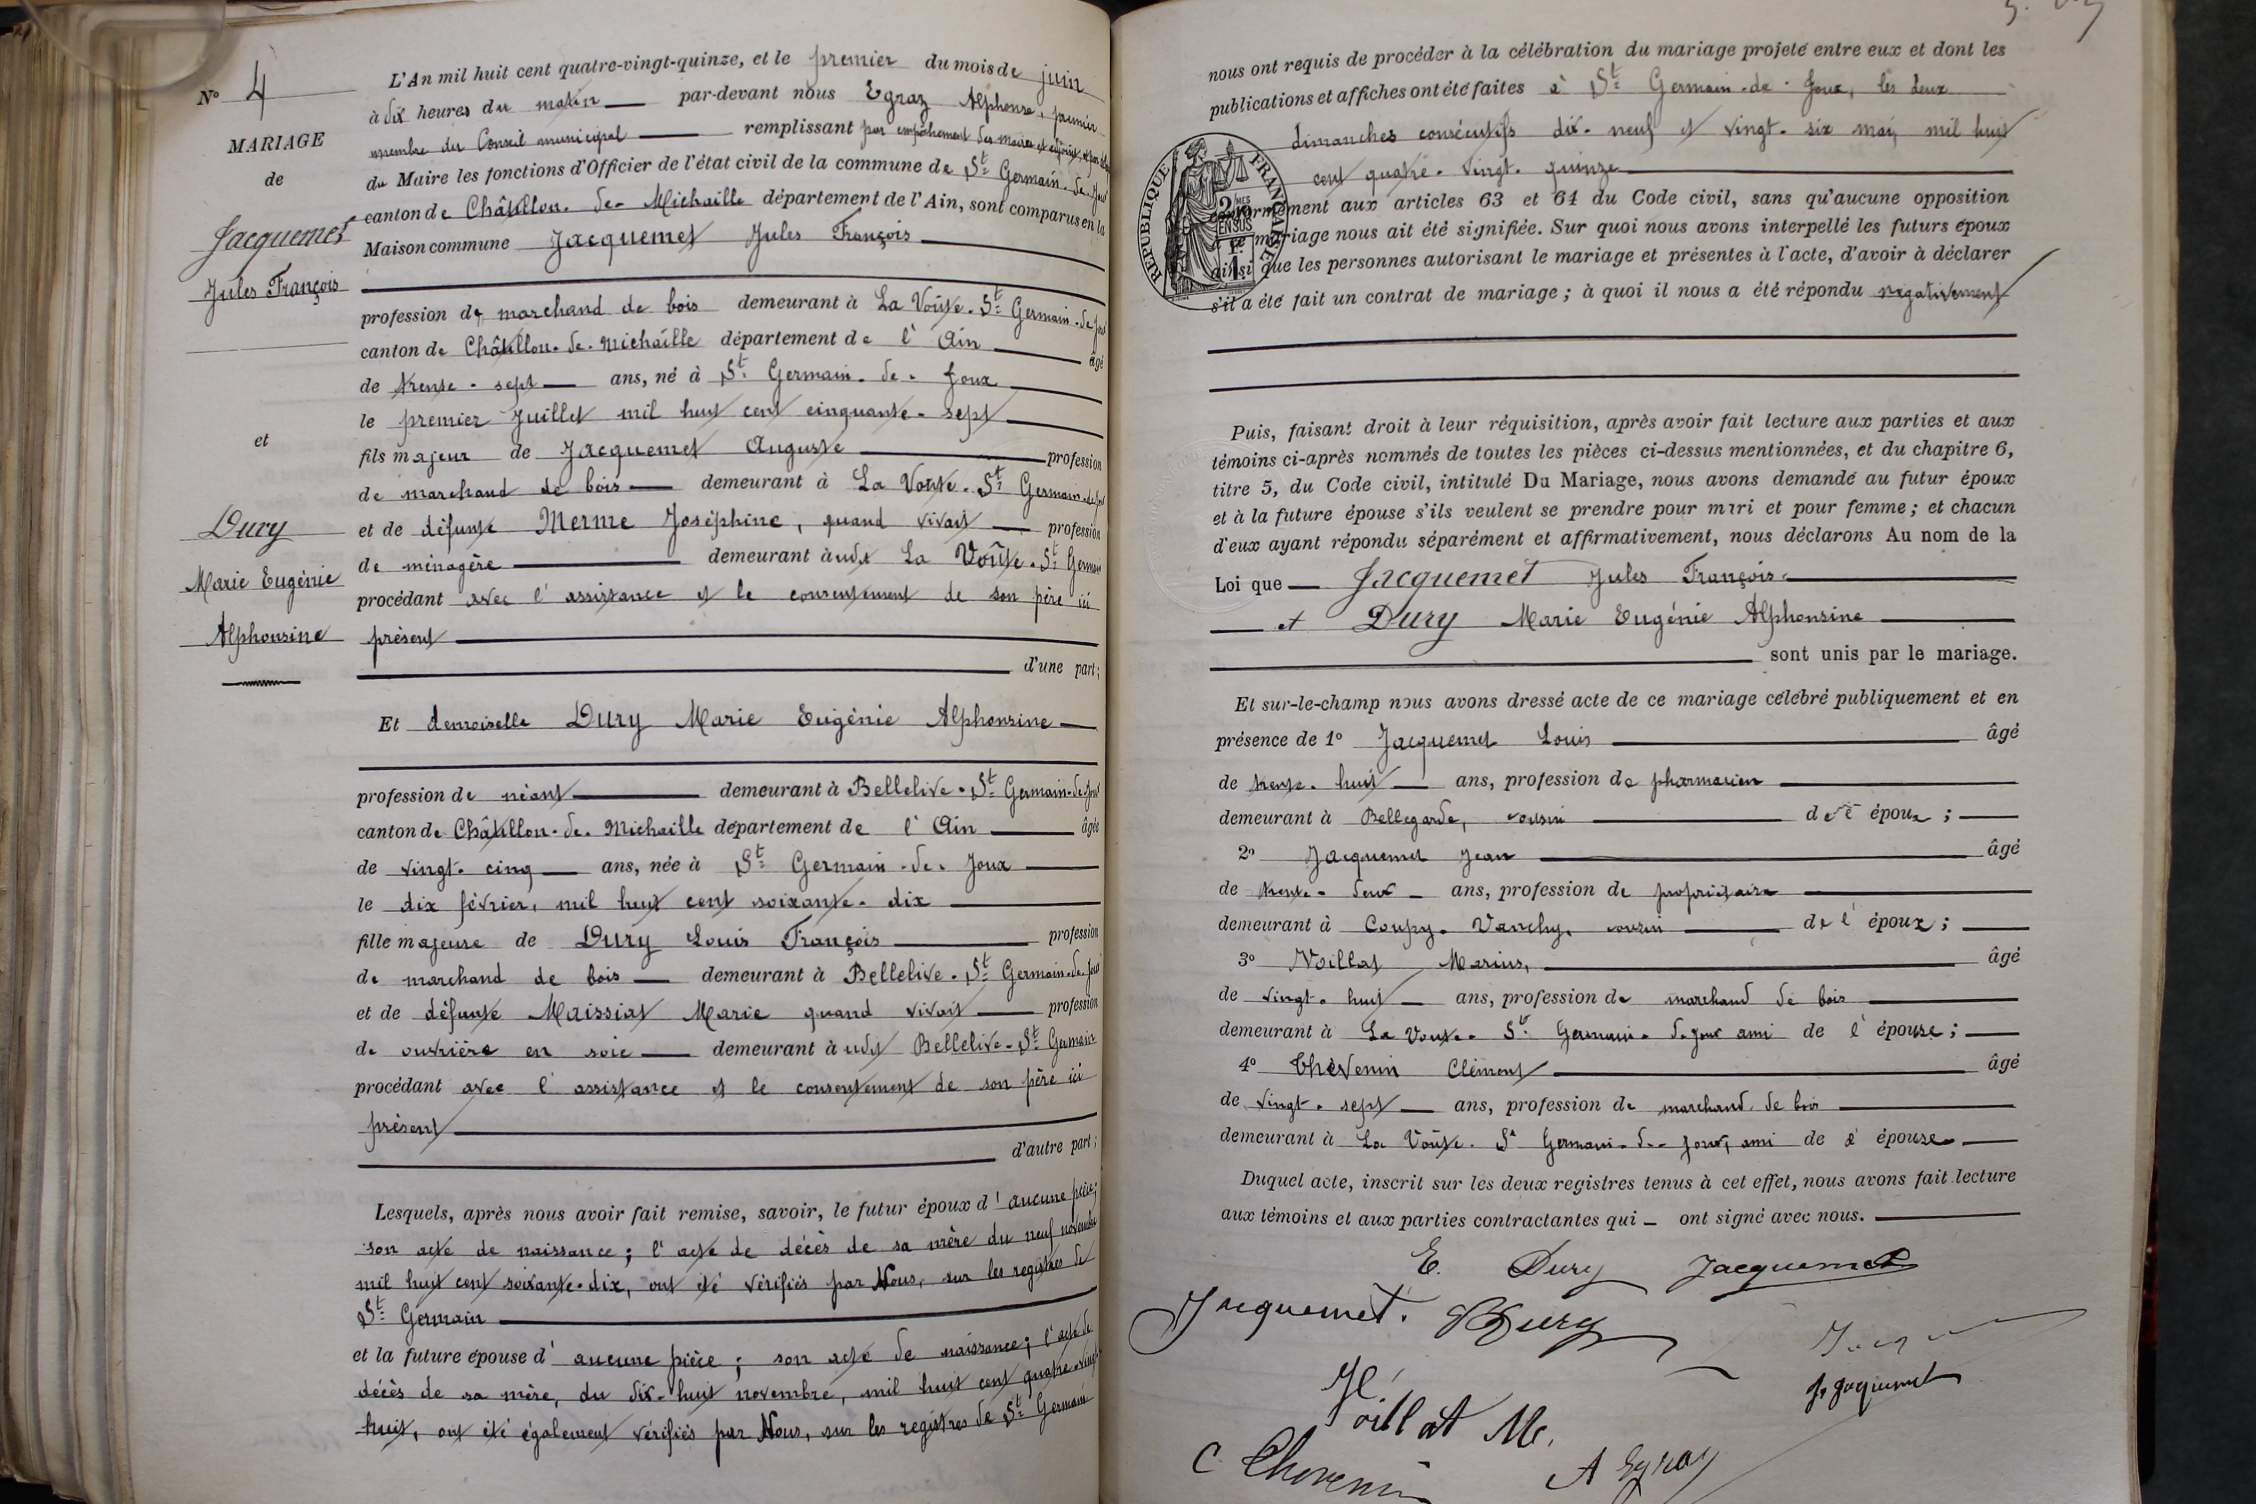 N° 4
MARIAGE
de
Jacquemet
Jules François
et
Dury
Marie Eugénie
Alphonsine
L'An mil huit cent quatre-vingt-quinze, et le premier du mois de juin
à dix heures du matin par-devant nous Egraz Alphonse, premier
membre du Conseil municipal remplissant par empêchement des maire et adjoint,
du Maire les fonctions d'Officier de l'état civil de la commune de St Germain-de-Joux
canton de Châtillon-de-Michaille département de l'Ain, sont comparus en la
Maison commune Jacquemet Jules François
profession de marchand de bois demeurant à La Voûte-St Germain-de-Joux
canton de Châtillon-de-Michaille département de l'Ain âgé
de trente-sept ans, né à St Germain-de-Joux
le premier Juillet mil huit cent cinquante-sept
fils majeur de Jacquemet Auguste profession
de marchand de bois demeurant à La Voûte-St Germain-de-Joux
et de défunte Merme Joséphine, quand vivait profession
de ménagère demeurant audit La Voûte-St Germain
procédant avec l'assistance et le consentement de son père ici
présent
d'une part;
Et demoiselle Dury Marie Eugénie Alphonsine
profession de néant demeurant à Bellelive-St Germain-de-Joux
canton de Châtillon-de-Michaille département de l'Ain âgée
de vingt-cinq ans, née à St Germain-de-Joux
le dix février, mil huit cent soixante-dix
fille majeure de Dury Louis François profession
de marchand de bois demeurant à Bellelive-St Germain-de-Joux
et de défunte Maissiat Marie quand vivait profession
de ouvrière en soie demeurant audit Bellelive-St Germain
procédant avec l'assistance et le consentement de son père ici
présent
d'autre part;
Lesquels, après nous avoir fait remise, savoir, le futur époux d'aucune pièce;
son acte de naissance; l'acte de décès de sa mère du neuf novembre
mil huit cent soixante-dix, ont été vérifiés par Nous, sur les registres de
St Germain
et la future épouse d'aucune pièce; son acte de naissance; l'acte de
décès de sa mère, du dix-huit novembre, mil huit cent quatre-vingt
huit, ont été également vérifiés par Nous, sur les registres de St Germain
nous ont requis de procéder à la célébration du mariage projeté entre eux et dont les
publications et affiches ont été faites à St Germain-de-Joux, les deux
dimanches consécutifs dix-neuf et vingt-six mai, mil huit
cent quatre-vingt-quinze
RÉPUBLIQUE FRANÇAISE
2 MES
EN SUS
conformément aux articles 63 et 64 du Code civil, sans qu'aucune opposition
à ce mariage nous ait été signifiée. Sur quoi nous avons interpellé les futurs époux
ainsi que les personnes autorisant le mariage et présentes à l'acte, d'avoir à déclarer
s'il a été fait un contrat de mariage; à quoi il nous a été répondu négativement
Puis, faisant droit à leur réquisition, après avoir fait lecture aux parties et aux
témoins ci-après nommés de toutes les pièces ci-dessus mentionnées, et du chapitre 6,
titre 5, du Code civil, intitulé Du Mariage, nous avons demandé au futur époux
et à la future épouse s'ils veulent se prendre pour mari et pour femme; et chacun
d'eux ayant répondu séparément et affirmativement, nous déclarons Au nom de la
Loi que Jacquemet Jules François
et Dury Marie Eugénie Alphonsine
sont unis par le mariage.
Et sur-le-champ nous avons dressé acte de ce mariage célébré publiquement et en
présence de 1° Jacquemet Louis âgé
de trente-huit ans, profession de pharmacien
demeurant à Bellegarde, cousin de l'époux;
2° Jacquemet Jean âgé
de trente-deux ans, profession de propriétaire
demeurant à Coupy-Vanchy, cousin de l'époux;
3° Voillat Marius, âgé
de vingt-huit ans, profession de marchand de bois
demeurant à La Voute-St Germain-de-Joux ami de l'épouse;
4° Thévenin Clément âgé
de vingt-sept ans, profession de marchand de bois
demeurant à La Voûte-St Germain-de-Joux, ami de l'épouse
Duquel acte, inscrit sur les deux registres tenus à cet effet, nous avons fait lecture
aux témoins et aux parties contractantes qui ont signé avec nous.
E. Dury Jacquemet
Jacquemet. Dury
J. Jacquemet
Voillat M.
C. Thevenin A Egraz